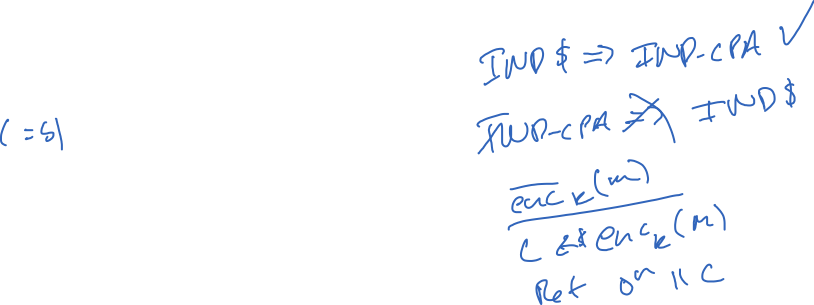 IND$ => IND-CPA ✓
IND-CPA ≠> IND$
enc̅_k(m)
C <-$ enc_k(m)
Ret 0^n || C